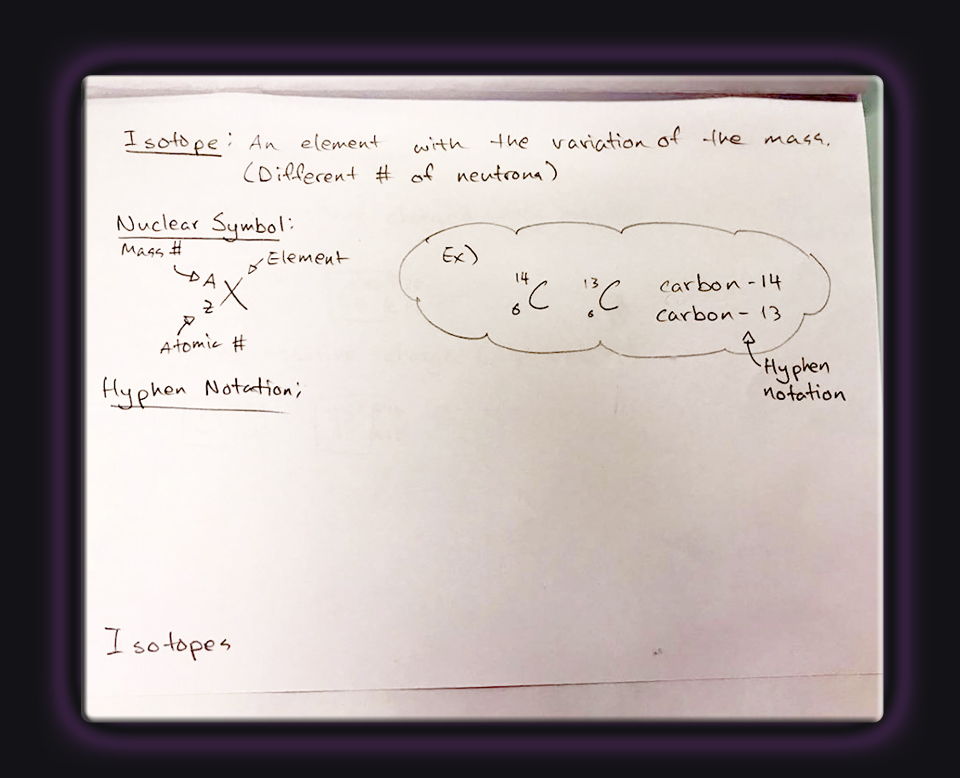 Isotope: An element with the variation of the mass.
(Different # of neutrons)
Nuclear Symbol:
Mass #
Element
A
X
Z
Atomic #
Ex)
14 C 6 13 C 6 carbon-14
carbon-13
Hyphen
notation
Hyphen Notation;
Isotopes